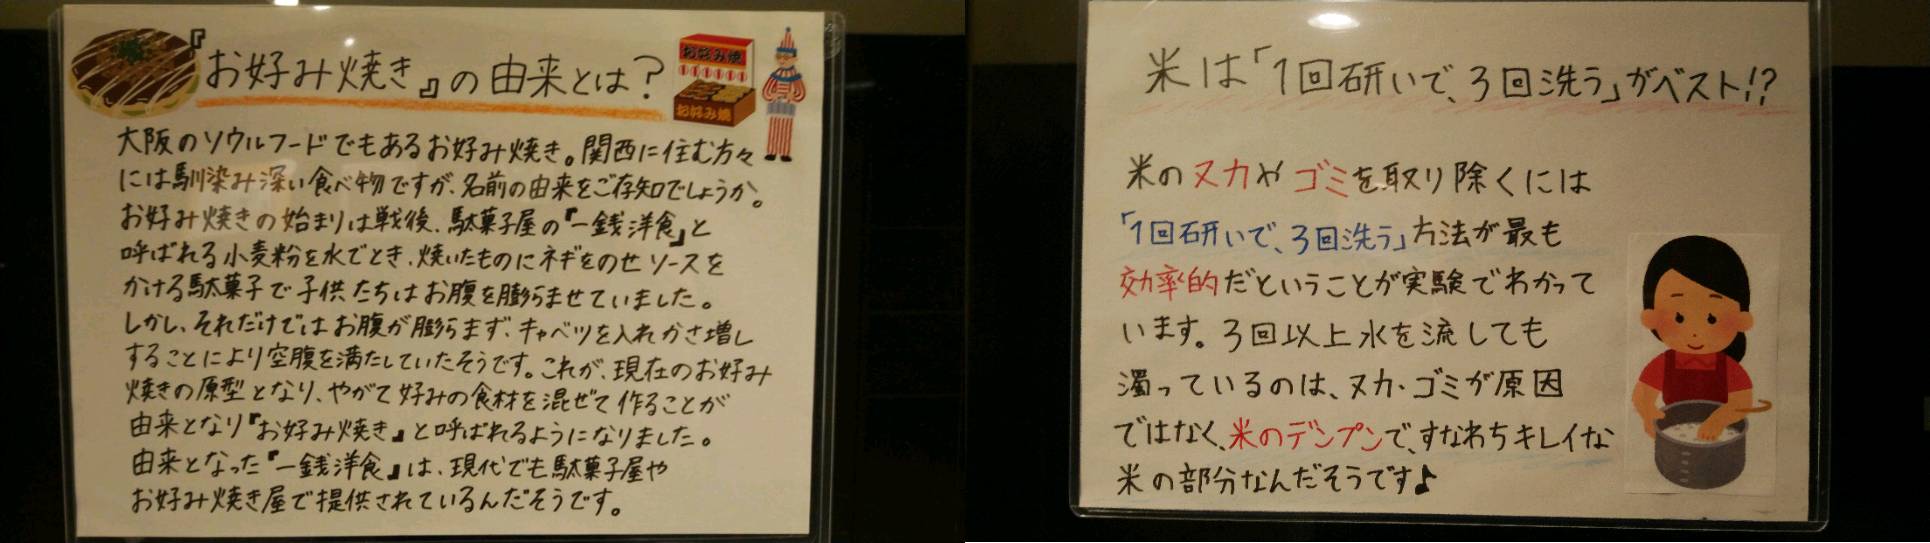 『お好み焼き』の由来とは？
お好み焼
お好み焼
大阪のソウルフードでもあるお好み焼き。関西に住む方々
には馴染み深い食べ物ですが、名前の由来をご存知でしょうか。
お好み焼きの始まりは戦後、駄菓子屋の『一銭洋食』と
呼ばれる小麦粉を水でとき、焼いたものにネギをのせソースを
かける駄菓子で子供たちはお腹を膨らませていました。
しかし、それだけではお腹が膨らまず、キャベツを入れかさ増し
することにより空腹を満たしていたそうです。これが、現在のお好み
焼きの原型となり、やがて好みの食材を混ぜて作ることが
由来となり『お好み焼き』と呼ばれるようになりました。
由来となった『一銭洋食』は、現代でも駄菓子屋や
お好み焼き屋で提供されているんだそうです。
米は「1回研いで、3回洗う」がベスト!?
米のヌカやゴミを取り除くには
「1回研いで、3回洗う」方法が最も
効率的だということが実験でわかって
います。3回以上水を流しても
濁っているのは、ヌカ・ゴミが原因
ではなく、米のデンプンで、すなわちキレイな
米の部分なんだそうです♪